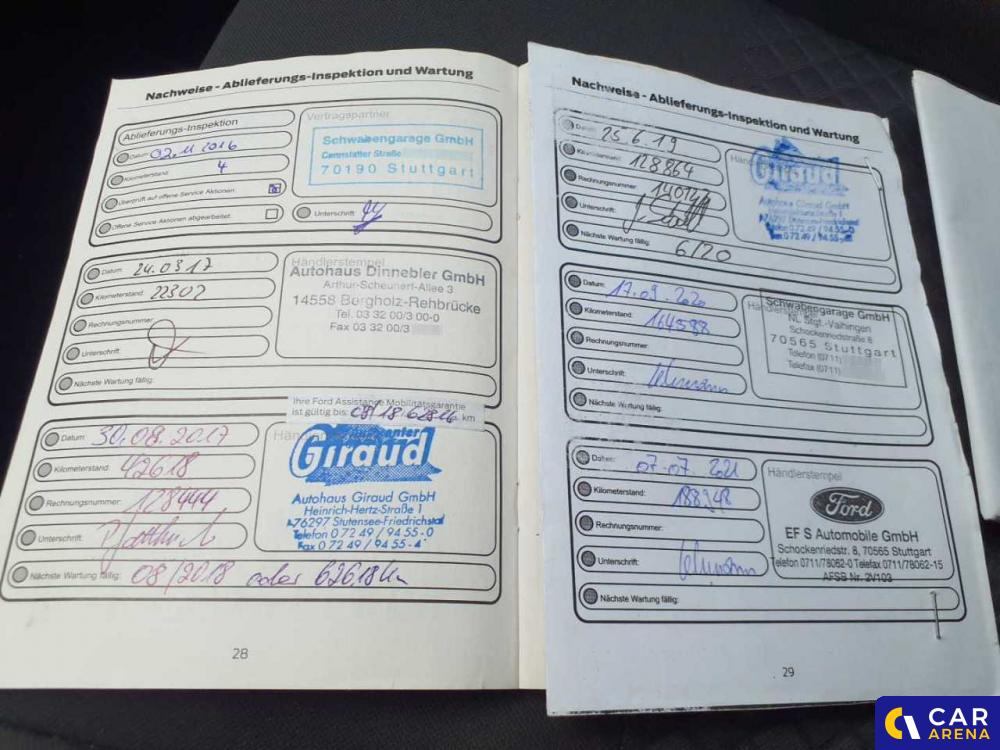 Nachweise - Ablieferungs-Inspektion und Wartung
Ablieferungs-Inspektion
Datum: 02.11.2016
Kilometerstand: 4
Überprüft auf offene Service Aktionen:
Offene Service Aktionen abgearbeitet:
Vertragspartner
Schwabengarage GmbH
Cannstatter Straße
70190 Stuttgart
Unterschrift:
Datum: 24.03.17
Kilometerstand: 22302
Rechnungsnummer:
Unterschrift:
Nächste Wartung fällig:
Händlerstempel
Autohaus Dinnebler GmbH
Arthur-Scheunert-Allee 3
14558 Bergholz-Rehbrücke
Tel. 03 32 00/3 00-0
Fax 03 32 00/3
Ihre Ford Assistance Mobilitätsgarantie
ist gültig bis: 08/18 62816 km
Datum: 30.08.2017
Kilometerstand: 42618
Rechnungsnummer: 128444
Unterschrift:
Nächste Wartung fällig: 08/2018 oder 62618 km
Giraud
Autohaus Giraud GmbH
Heinrich-Hertz-Straße 1
76297 Stutensee-Friedrichstal
Telefon 0 72 49 / 94 55-0
Fax 0 72 49 / 94 55-4
28
Nachweise - Ablieferungs-Inspektion und Wartung
Datum: 25.6.19
Kilometerstand: 128864
Rechnungsnummer:
Unterschrift:
Nächste Wartung fällig: 6/20
Giraud
Autohaus Giraud GmbH
Heinrich-Hertz-Straße 1
76297 Stutensee-Friedrichstal
Telefon 0 72 49 / 94 55-0
Fax 0 72 49 / 94 55-
Datum: 17.09.2020
Kilometerstand: 164588
Rechnungsnummer:
Unterschrift:
Nächste Wartung fällig:
Händlerstempel
Schwabengarage GmbH
NL Stgt.-Vaihingen
Schockenriedstraße 8
70565 Stuttgart
Telefon (0711)
Telefax (0711)
Datum: 07.07.2021
Kilometerstand: 188348
Rechnungsnummer:
Unterschrift:
Nächste Wartung fällig:
Händlerstempel
Ford
EF S Automobile GmbH
Schockenriedstr. 8, 70565 Stuttgart
Telefon 0711/78062-0 Telefax 0711/78062-15
AFSB Nr. 2V103
29
CAR
ARENA